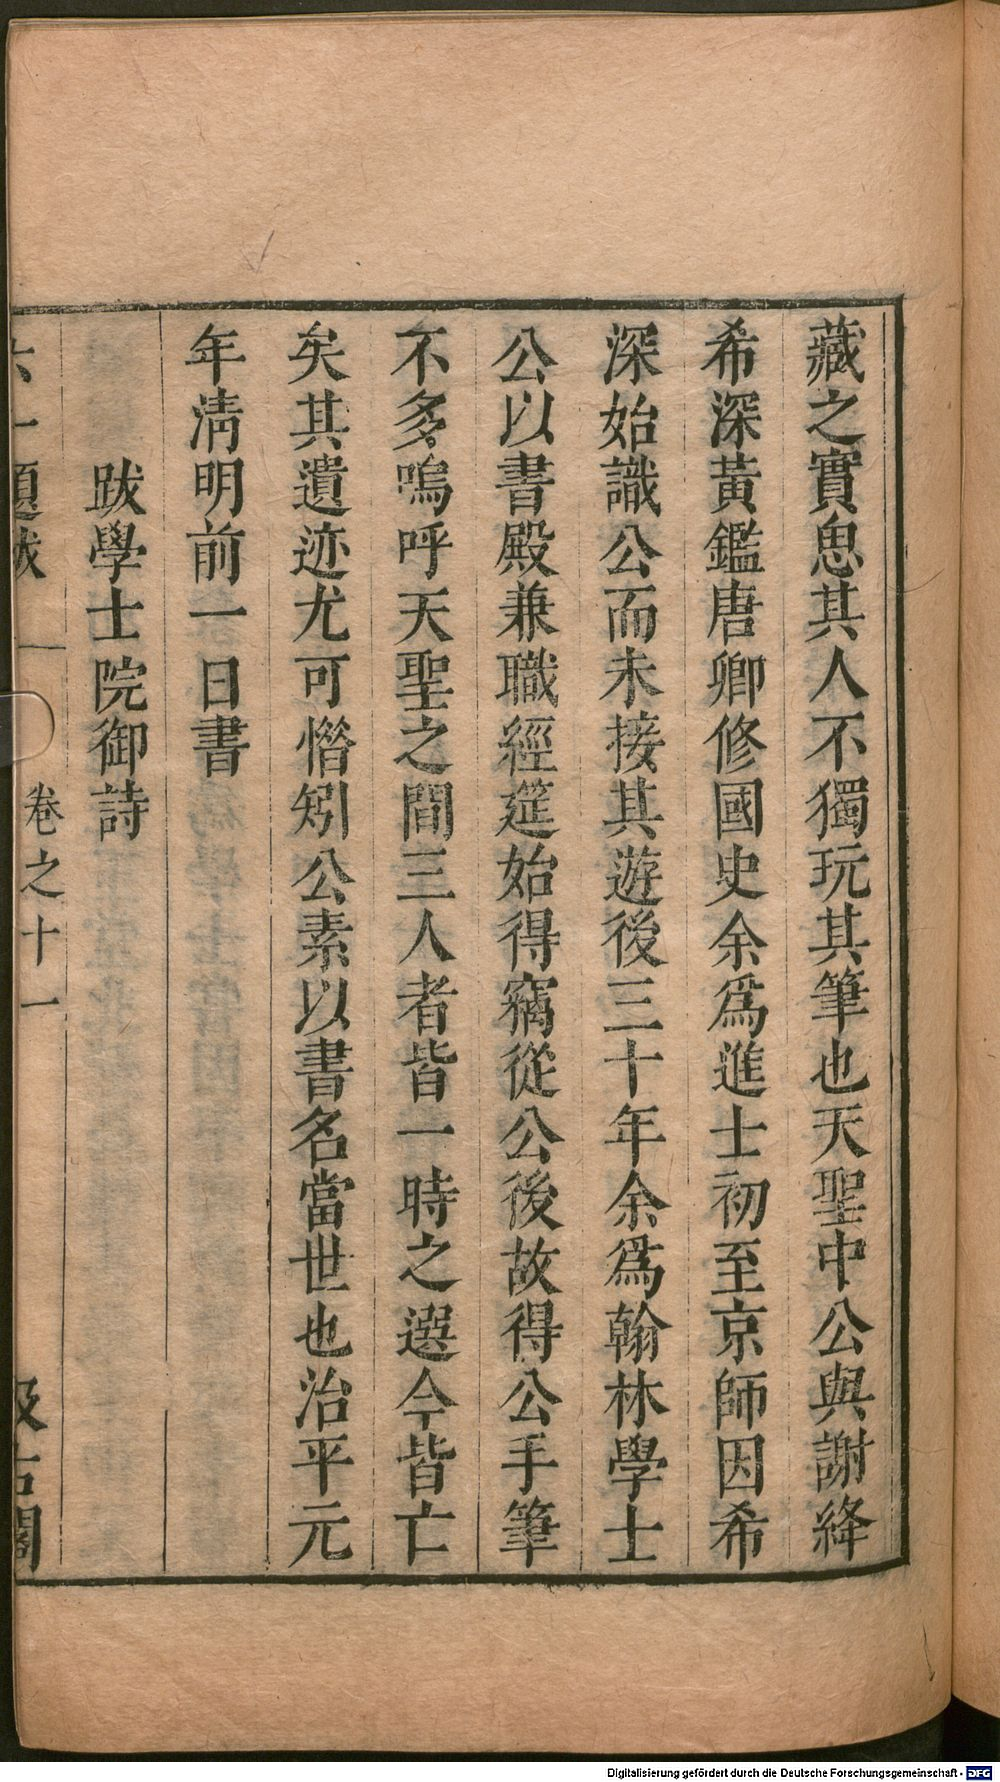 藏之實思其人不獨玩其筆也天聖中公與謝絳
希深黃鑑唐卿修國史余爲進士初至京師因希
深始識公而未接其遊後三十年余爲翰林學士
公以書殿兼職經筵始得竊從公後故得公手筆
不多嗚呼天聖之間三人者皆一時之選今皆亡
矣其遺迹尤可惜矧公素以書名當世也治平元
年淸明前一日書
跋學士院御詩
六一題跋 卷之十一 汲古閣
Digitalisierung gefördert durch die Deutsche Forschungsgemeinschaft - DFG